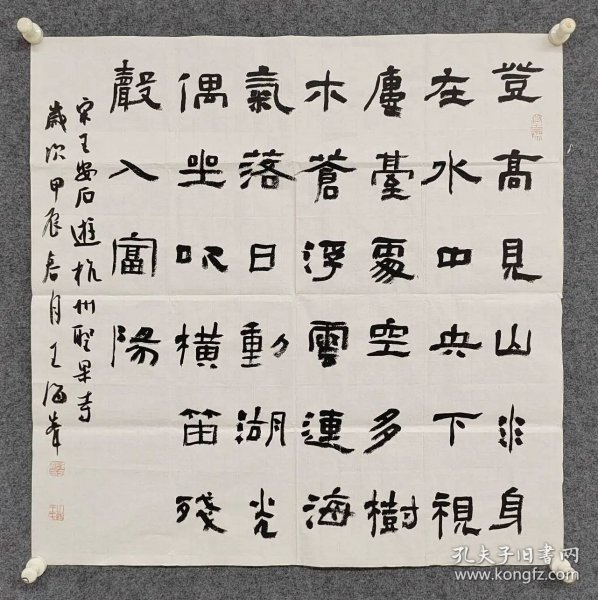 登高見山水身
在水中央下視
廔臺處空多樹
木蒼浮雲連海
氣落日動湖光
偶坐吹橫笛殘
聲入富陽
宋王安石遊杭州聖果寺
歲次甲辰春月王海峯
孔夫子旧书网
www.kongfz.com